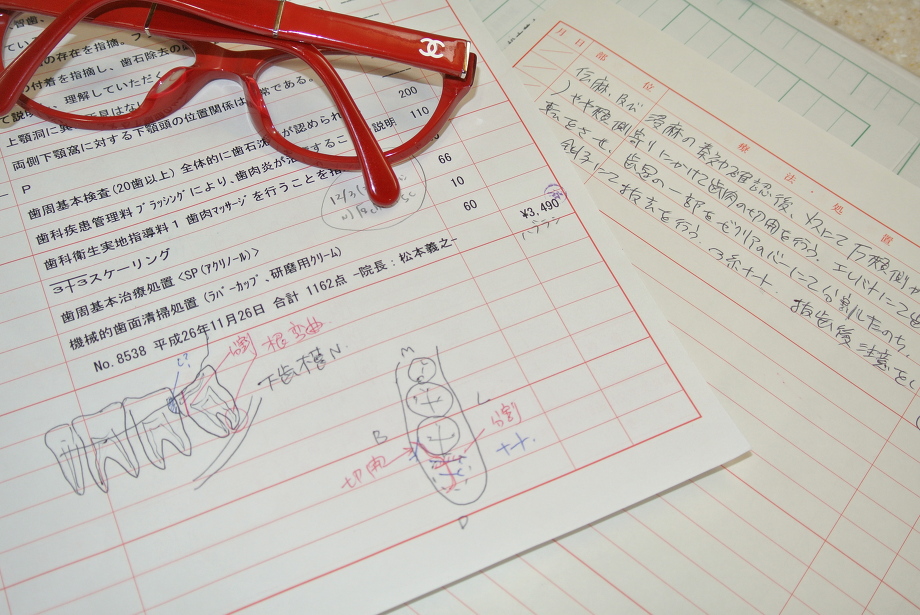 智歯、
ている
の存在を指摘。ブ
の付着を指摘し、歯石除去の
て説明し、理解していただく
上顎洞に異
所見はない
両側下顎窩に対する下顎頭の位置関係は
常である。
P
200
歯周基本検査(20歯以上) 全体的に歯石沈
が認められ
110
歯科疾患管理料 ブラッシングにより、歯肉炎が
すること
説明
歯科衛生実地指導料1 歯肉マッサージを行うことを指
66
3+3スケーリング
10
歯周基本治療処置<SP(アクリノール)>
60
¥3,490
機械的歯面清掃処置 (ラバーカップ、研磨用クリーム)
No. 8538 平成26年11月26日 合計 1162点 −院長:松本義之−
分割
根弯曲
C?
下歯槽N.
M
L
B
D
分割
切開
ナート.
月 日 部 位 療 法 ・ 処 置
伝麻、及び 浸麻の奏効確認後、メスにて
頬側寄りにかけて歯肉の切開を行う。エレバにて
させ、歯冠の一部をゼクリアのバーにて分割したのち、
鉗子にて抜去を行う。3糸ナート。抜歯後注意を